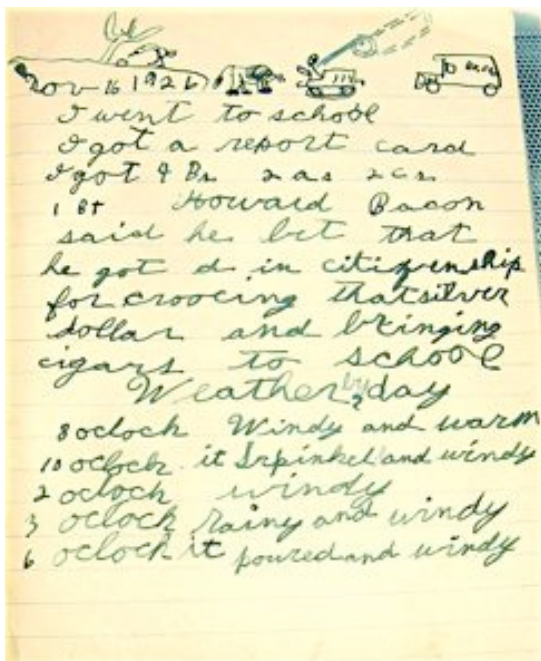 Nov 16 1926
I went to school
I got a report card
I got 9 Bs 2 as 2 cs
1 B+ Howard Bacon
said he bet that
he got d in citizenship
for croocing that silver
dollar and bringing
cigars to school
Weather by day
8 oclock Windy and warm
10 oclock it Srpinkel and windy
2 oclock windy
3 oclock rainy and windy
6 oclock it poured and windy